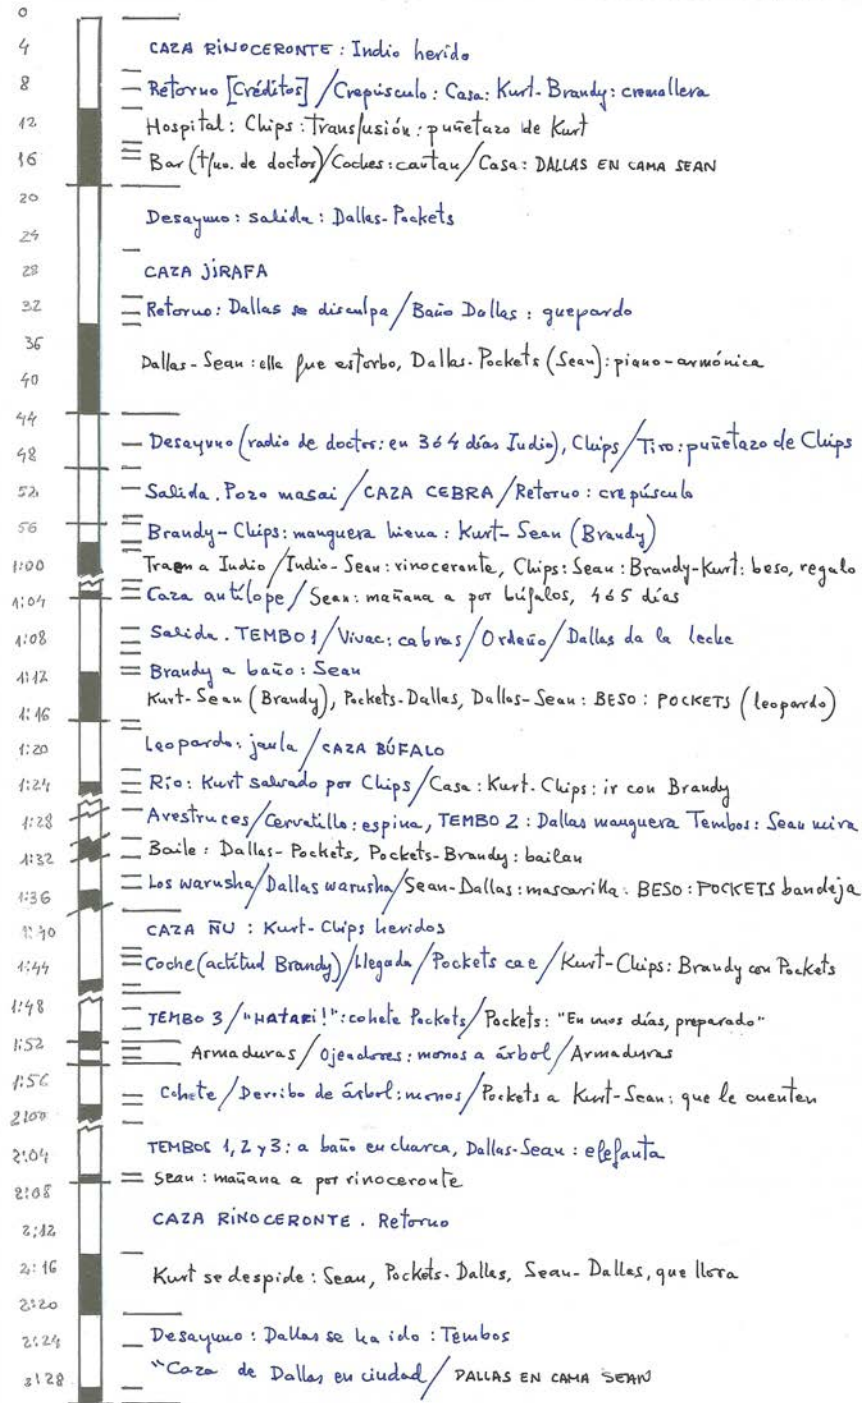 0
4 CAZA RINOCERONTE : Indio herido
8 Retorno [Créditos] / Crepúsculo : Casa : Kurt-Brandy : cremallera
12 Hospital : Chips : Transfusión : puñetazo de Kurt
16 Bar (tfno. de doctor) / Coches : cantan / Casa : DALLAS EN CAMA SEAN
20
Desayuno : salida : Dallas-Pockets
24
28 CAZA JIRAFA
32 Retorno : Dallas se disculpa / Baño Dallas : guepardo
36
Dallas-Sean : ella fue estorbo, Dallas-Pockets (Sean) : piano-armónica
40
44
48 Desayuno (radio de doctor : en 3 ó 4 días Indio), Chips / Tiro : puñetazo de Chips
52 Salida. Pozo masai / CAZA CEBRA / Retorno : crepúsculo
56 Brandy-Chips : manguera hiena : Kurt-Sean (Brandy)
1:00 Traen a Indio / Indio-Sean : rinoceronte, Chips : Sean : Brandy-Kurt : beso, regalo
1:04 Caza antílope / Sean : mañana a por búfalos, 4 ó 5 días
1:08 Salida. TEMBO 1 / Vivac : cabras / Ordeño / Dallas da la leche
1:12 Brandy a baño : Sean
Kurt-Sean (Brandy), Pockets-Dallas, Dallas-Sean : BESO : POCKETS (leopardo)
1:16
1:20 Leopardo : jaula / CAZA BÚFALO
1:24 Río : Kurt salvado por Chips / Casa : Kurt-Chips : ir con Brandy
1:28 Avestruces / Cervatillo : espina, TEMBO 2 : Dallas manguera Tembos : Sean mira
1:32 Baile : Dallas-Pockets, Pockets-Brandy : bailan
1:36 Los warusha / Dallas warusha / Sean-Dallas : mascarilla : BESO : POCKETS bandeja
1:40 CAZA ÑU : Kurt-Chips heridos
1:44 Coche (actitud Brandy) / Llegada / Pockets cae / Kurt-Chips : Brandy con Pockets
1:48 TEMBO 3 / "HATARI!" : cohete Pockets / Pockets : "En unos días, preparado"
1:52 Armaduras / Ojeadores : monos a árbol / Armaduras
1:56 Cohete / Derribo de árbol : monos / Pockets a Kurt-Sean : que le cuenten
2:00
2:04 TEMBOS 1, 2 y 3 : a baño en charca, Dallas-Sean : elefanta
2:08 Sean : mañana a por rinoceronte
2:12 CAZA RINOCERONTE . Retorno
2:16 Kurt se despide : Sean, Pockets-Dallas, Sean-Dallas, que llora
2:20
2:24 Desayuno : Dallas se ha ido : Tembos
2:28 "Caza de Dallas en ciudad / DALLAS EN CAMA SEAN